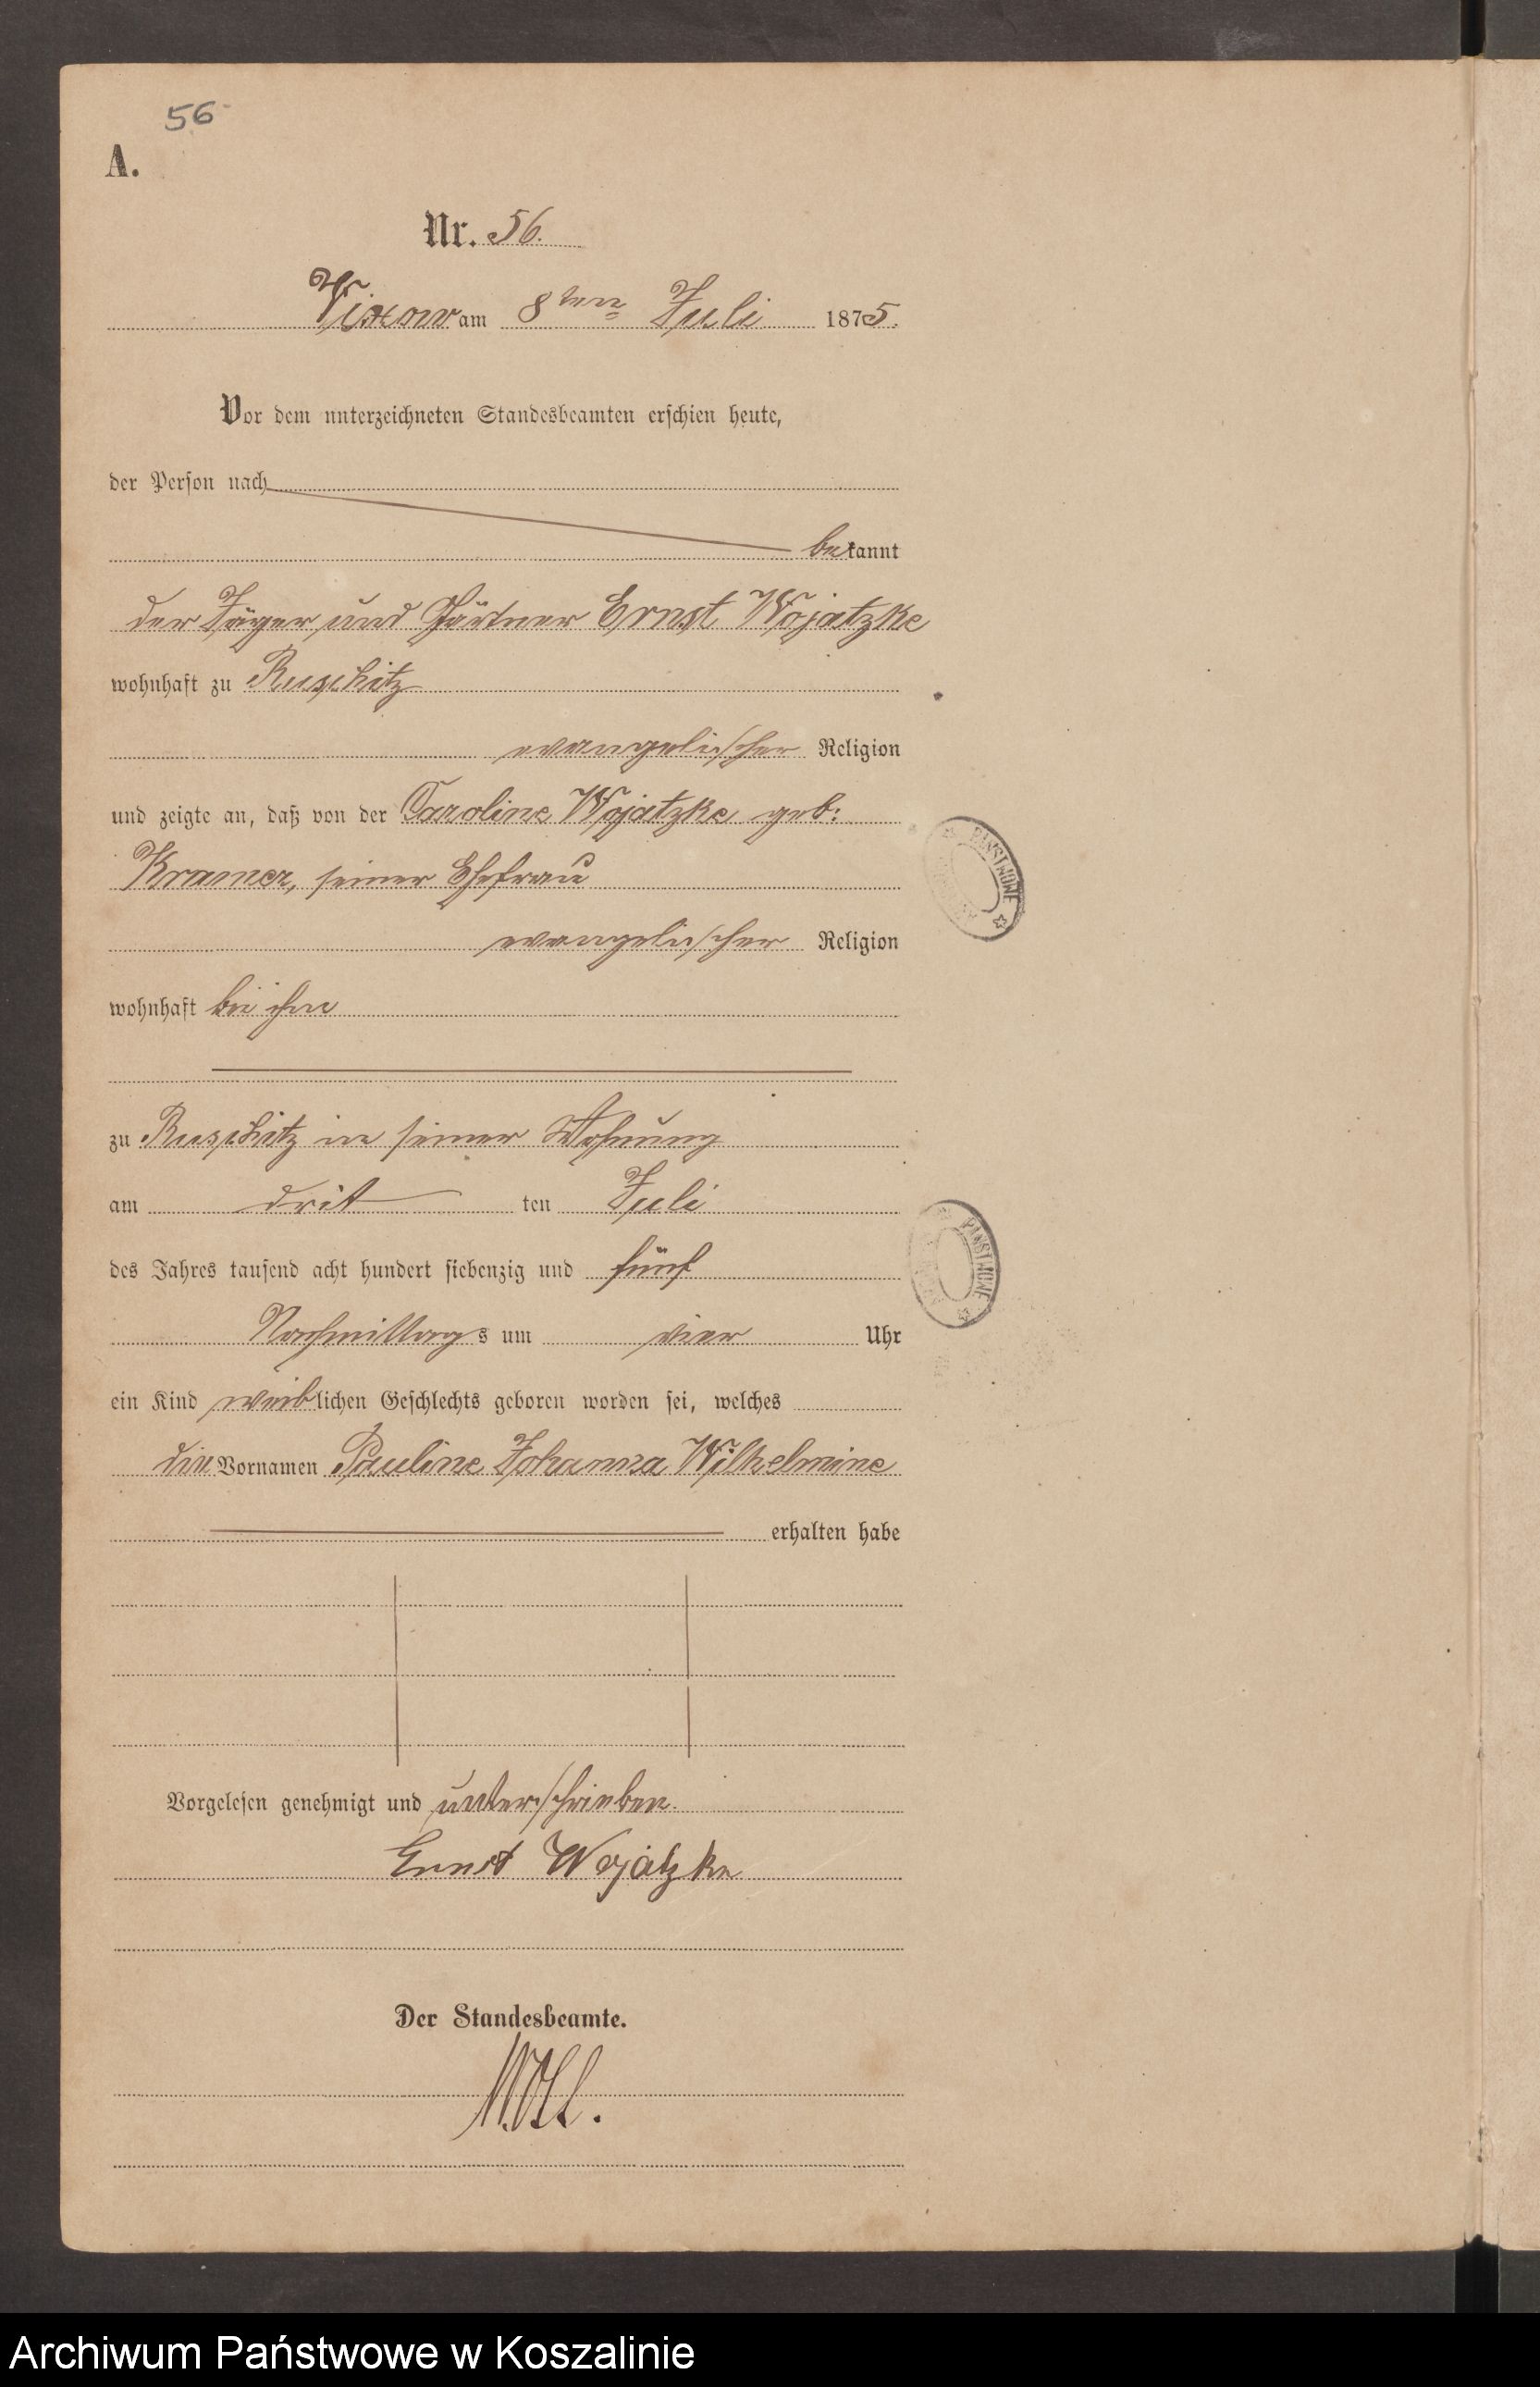 56
A.
Nr. 56.
Vixow am 8ten Juli 1875.
Vor dem unterzeichneten Standesbeamten erschien heute,
der Person nach
bekannt
der Jäger und Gärtner Ernst Wojatzke
wohnhaft zu Ruschitz
evangelischer Religion
und zeigte an, daß von der Caroline Wojatzke geb:
Kramer, seiner Ehefrau
evangelischer Religion
wohnhaft bei ihm
zu Ruschitz in seiner Wohnung
am drit ten Juli
des Jahres tausend acht hundert siebenzig und fünf
Nachmittags um vier Uhr
ein Kind weiblichen Geschlechts geboren worden sei, welches
die Vornamen Pauline Johanna Wilhelmine
erhalten habe
Vorgelesen genehmigt und unterschrieben.
Ernst Wojatzke
Der Standesbeamte.
PAŃSTWOWE
PAŃSTWOWE
Archiwum Państwowe w Koszalinie